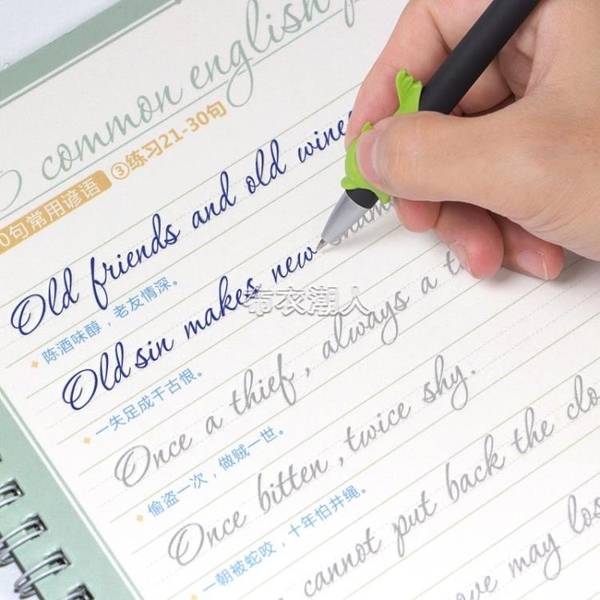 common english
0句常用谚语 ③练习21-30句
Old friends and old wines
陈酒味醇，老友情深。
Old sin makes new sham
一失足成千古恨。
布衣潮人
Once a thief, always a t
偷盗一次，做贼一世。
Once bitten, twice shy.
一朝被蛇咬，十年怕井绳。
cannot put back the clo
ove may los